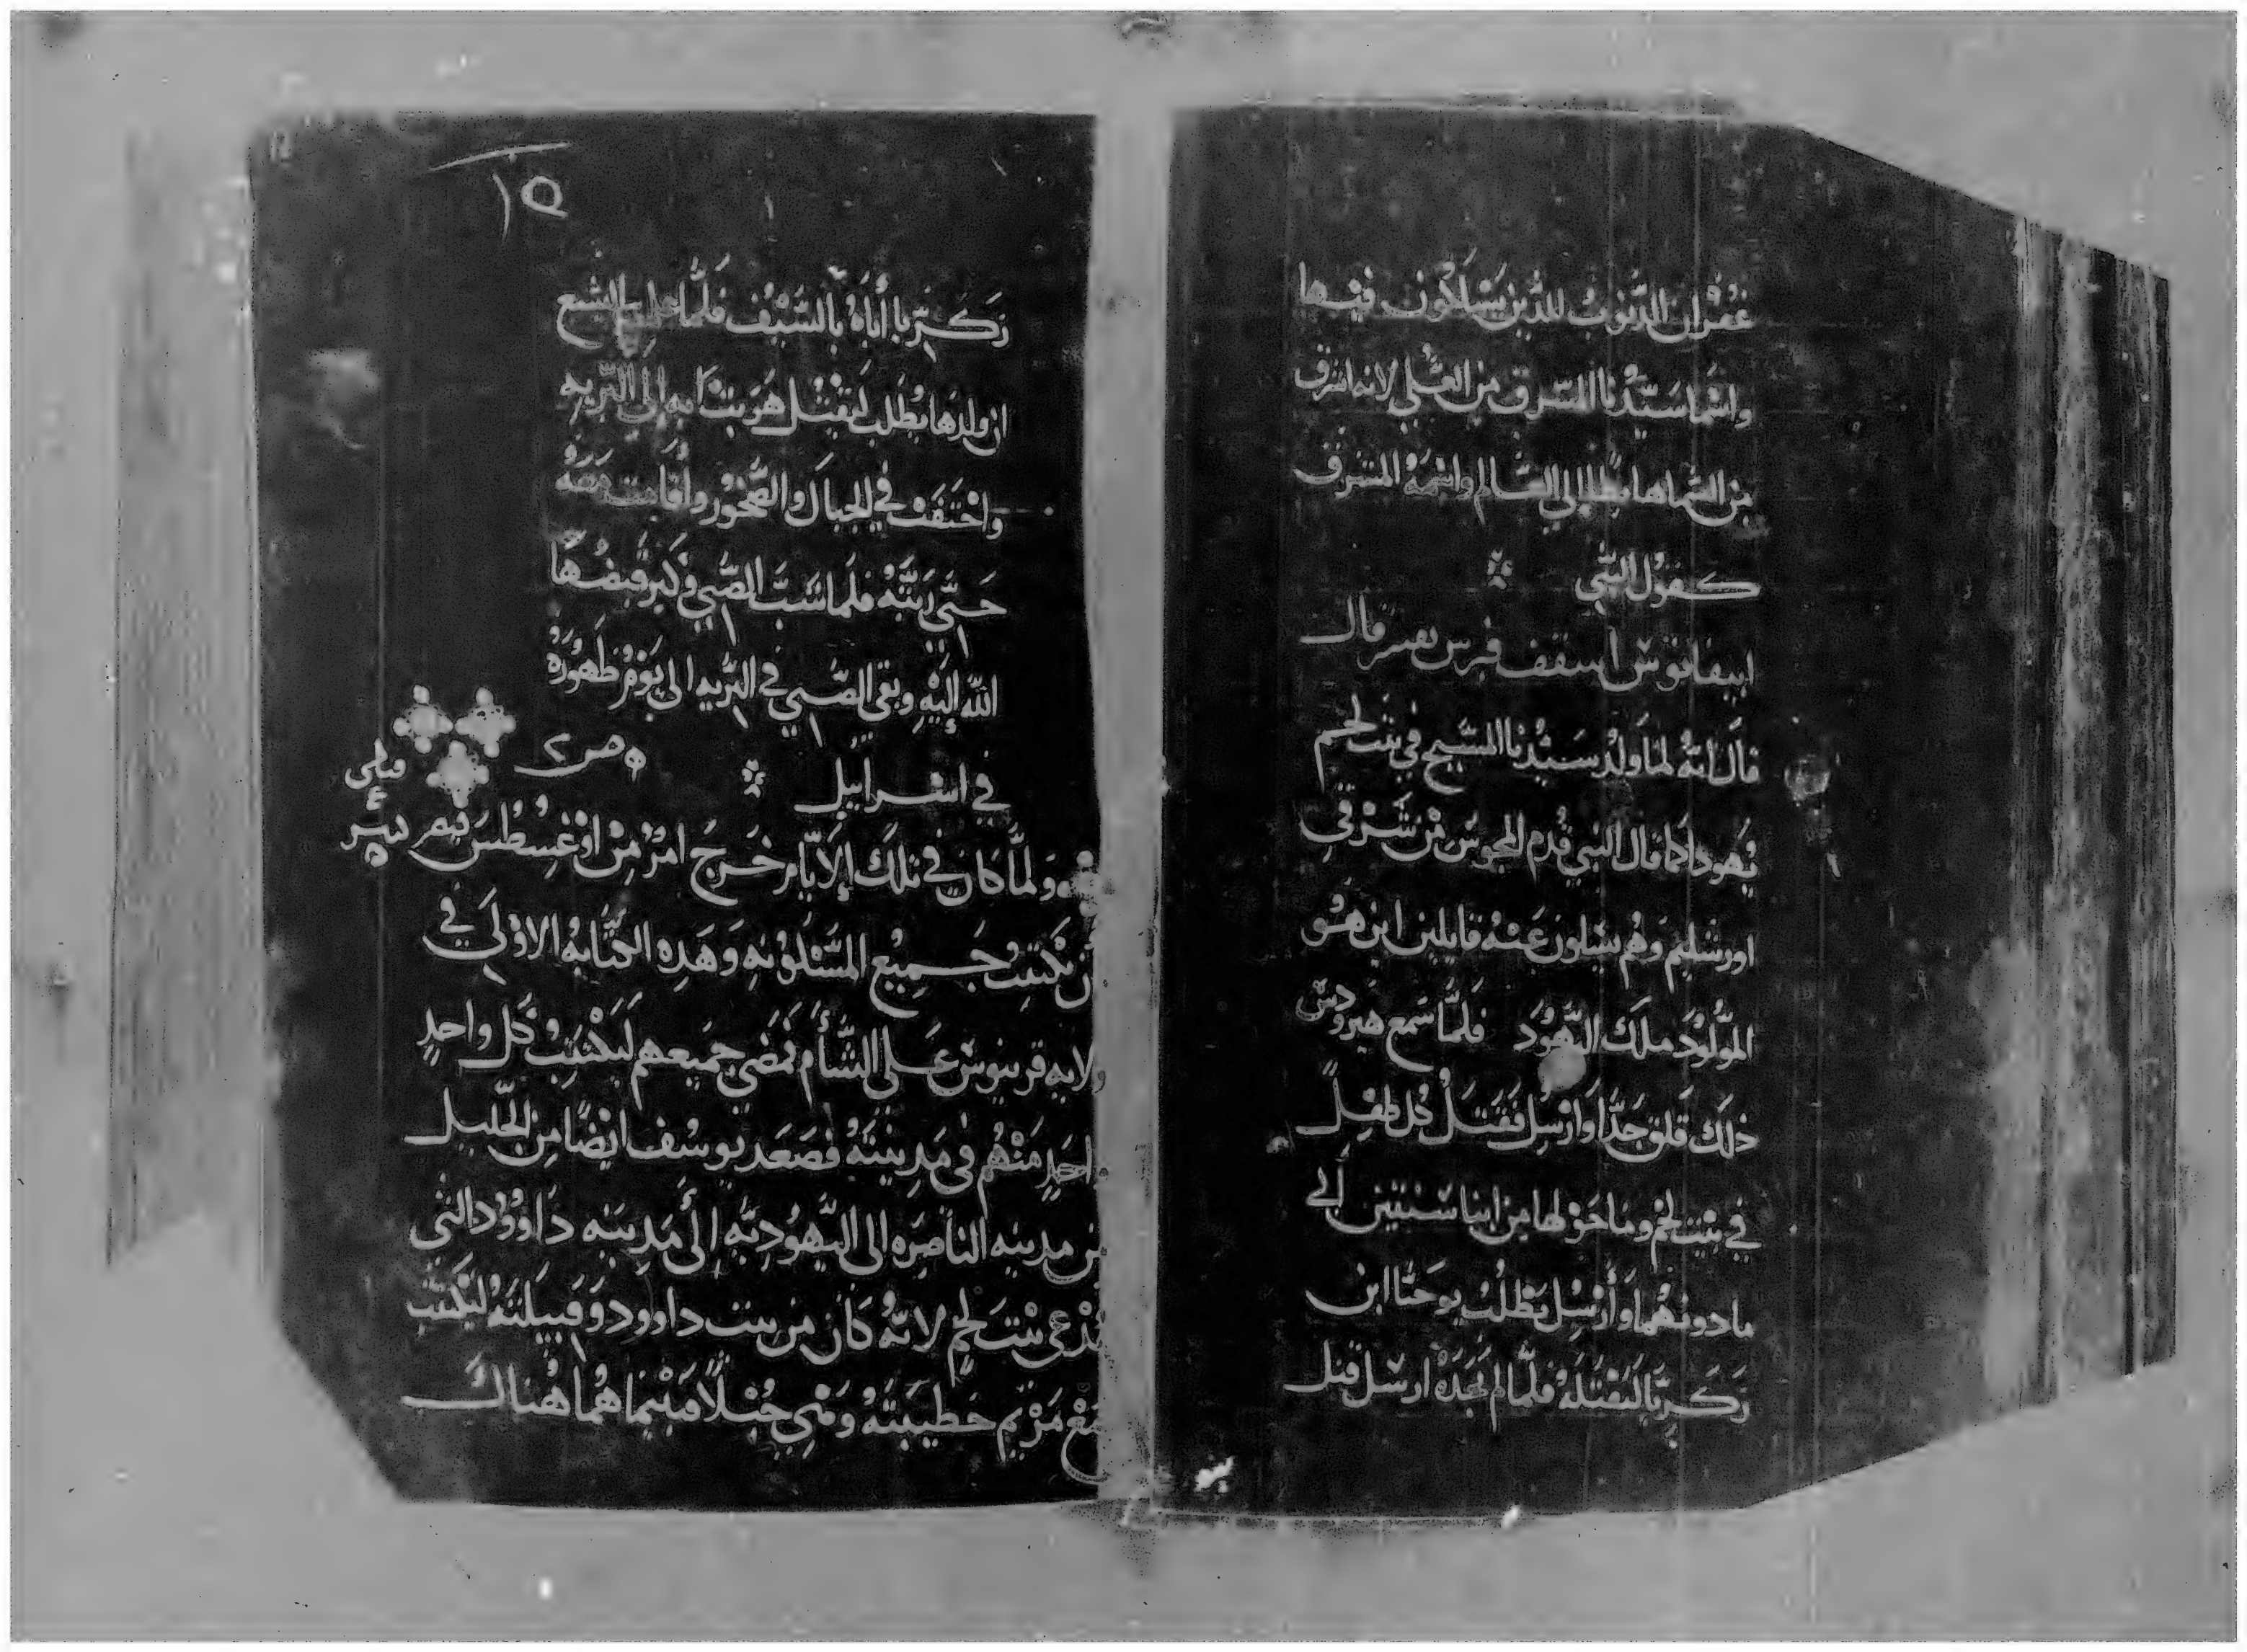 غفران الذنوب للذين يسلكون فيها
واسما سيدنا المشرق من العلي لانه اشرق
من السما هابطا إلى العالم واسمه المشرق
كقول النبي
ابيفانوس اسقف قبرس يفسر قال
قال انه لما ولد سيدنا المسيح في بيت لحم
يهودا كما قال النبي قدم المجوس من شرقي
اورشليم وهم يسلون عنه قايلين اين هو
المولود ملك اليهود فلما سمع هيرودس
ذلك قلق جدا وارسل فقتل كل طفل
في بيت لحم وما حولها من ابنا سنتين الى
ما دونهما وأرسل يطلب يوحنا ابن
زكريا ليقتله فلما لم يجده ارسل قتل
١٥
زكريا أباه بالسيف فلما اليشبع
ان ولدها يطلب ليقتل هربت به إلى البريه
واختفت في الجبال والصخور وأقامت معه
حتى ربته فلما شب الصبي وكبر قبضها
الله إليه وبقي الصبي في البريه الى يوم ظهوره
في اسرائيل
ولما كان في تلك الايام خرج امر من اوغسطس قيصر
أن يكتب جميع المسكونه وهذه الكتابه الاولى في
ولايه قرينوس على الشأم فمضى جميعهم ليكتب كل واحد
واحد منهم في مدينته فصعد يوسف ايضا من الجليل
من مدينه الناصره الى اليهوديه إلى مدينه داوود التي
تدعى بيت لحم لانه كان من بيت داوود وقبيلته ليكتب
مع مريم خطيبته وهي حبلا فبينما هما هناك